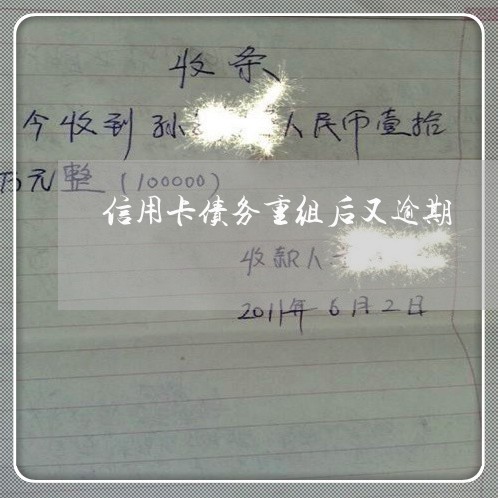 收条
今收到孙 人民币壹拾
万元整(100000)
信用卡债务重组后又逾期
收款人
2011年6月2日